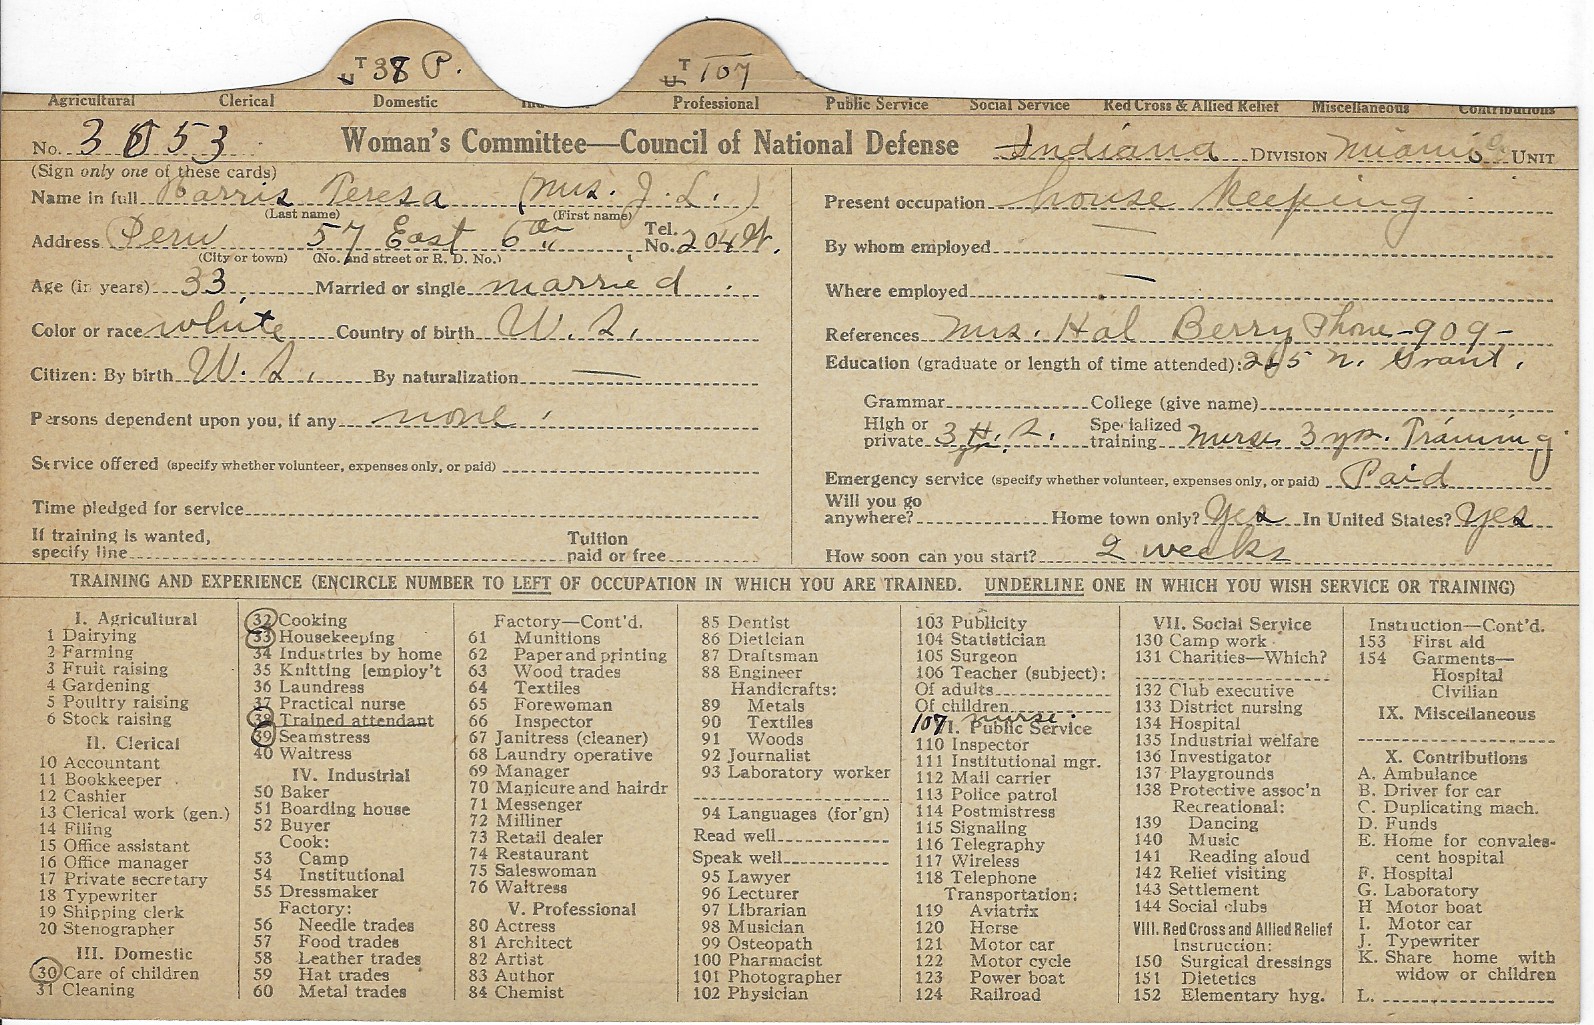 T 38 P. T 107
Agricultural Clerical Domestic Professional Public Service Social Service Red Cross & Allied Relief Miscellaneous Contributions
No. 3853 Woman's Committee—Council of National Defense Indiana DIVISION Miami Co UNIT
(Sign only one of these cards)
Name in full Harris Teresa (Mrs. J. L.)
(Last name) (First name)
Address Peru 57 East 6th Tel. No. 204 W.
(City or town) (No. and street or R. D. No.)
Age (in years) 33 Married or single married.
Color or race white Country of birth U. S.
Citizen: By birth U. S. By naturalization —
Persons dependent upon you, if any none.
Service offered (specify whether volunteer, expenses only, or paid)
Time pledged for service
If training is wanted, specify line Tuition paid or free
Present occupation house keeping
By whom employed —
Where employed —
References Mrs. Hal Berry Phone-909-
Education (graduate or length of time attended): 265 N. Grant.
Grammar College (give name)
High or private 3 yr. H. S. Specialized training nurse 3 yrs. Training
Emergency service (specify whether volunteer, expenses only, or paid) Paid
Will you go anywhere? Home town only? Yes In United States? Yes
How soon can you start? 2 weeks
TRAINING AND EXPERIENCE (ENCIRCLE NUMBER TO LEFT OF OCCUPATION IN WHICH YOU ARE TRAINED. UNDERLINE ONE IN WHICH YOU WISH SERVICE OR TRAINING)
I. Agricultural
1 Dairying
2 Farming
3 Fruit raising
4 Gardening
5 Poultry raising
6 Stock raising
II. Clerical
10 Accountant
11 Bookkeeper
12 Cashier
13 Clerical work (gen.)
14 Filing
15 Office assistant
16 Office manager
17 Private secretary
18 Typewriter
19 Shipping clerk
20 Stenographer
III. Domestic
30 Care of children
31 Cleaning
32 Cooking
33 Housekeeping
34 Industries by home
35 Knitting [employ't
36 Laundress
37 Practical nurse
38 Trained attendant
39 Seamstress
40 Waitress
IV. Industrial
50 Baker
51 Boarding house
52 Buyer
Cook:
53 Camp
54 Institutional
55 Dressmaker
Factory:
56 Needle trades
57 Food trades
58 Leather trades
59 Hat trades
60 Metal trades
Factory—Cont'd.
61 Munitions
62 Paper and printing
63 Wood trades
64 Textiles
65 Forewoman
66 Inspector
67 Janitress (cleaner)
68 Laundry operative
69 Manager
70 Manicure and hairdr
71 Messenger
72 Milliner
73 Retail dealer
74 Restaurant
75 Saleswoman
76 Waitress
V. Professional
80 Actress
81 Architect
82 Artist
83 Author
84 Chemist
85 Dentist
86 Dietician
87 Draftsman
88 Engineer
Handicrafts:
89 Metals
90 Textiles
91 Woods
92 Journalist
93 Laboratory worker
94 Languages (for'gn)
Read well
Speak well
95 Lawyer
96 Lecturer
97 Librarian
98 Musician
99 Osteopath
100 Pharmacist
101 Photographer
102 Physician
103 Publicity
104 Statistician
105 Surgeon
106 Teacher (subject):
Of adults
Of children
107 nurse.
VI. Public Service
110 Inspector
111 Institutional mgr.
112 Mail carrier
113 Police patrol
114 Postmistress
115 Signaling
116 Telegraphy
117 Wireless
118 Telephone
Transportation:
119 Aviatrix
120 Horse
121 Motor car
122 Motor cycle
123 Power boat
124 Railroad
VII. Social Service
130 Camp work
131 Charities—Which?
132 Club executive
133 District nursing
134 Hospital
135 Industrial welfare
136 Investigator
137 Playgrounds
138 Protective assoc'n
Recreational:
139 Dancing
140 Music
141 Reading aloud
142 Relief visiting
143 Settlement
144 Social clubs
VIII. Red Cross and Allied Relief
Instruction:
150 Surgical dressings
151 Dietetics
152 Elementary hyg.
Instruction—Cont'd.
153 First aid
154 Garments—
Hospital
Civilian
IX. Miscellaneous
X. Contributions
A. Ambulance
B. Driver for car
C. Duplicating mach.
D. Funds
E. Home for convales-
cent hospital
F. Hospital
G. Laboratory
H Motor boat
I. Motor car
J. Typewriter
K. Share home with
widow or children
L.